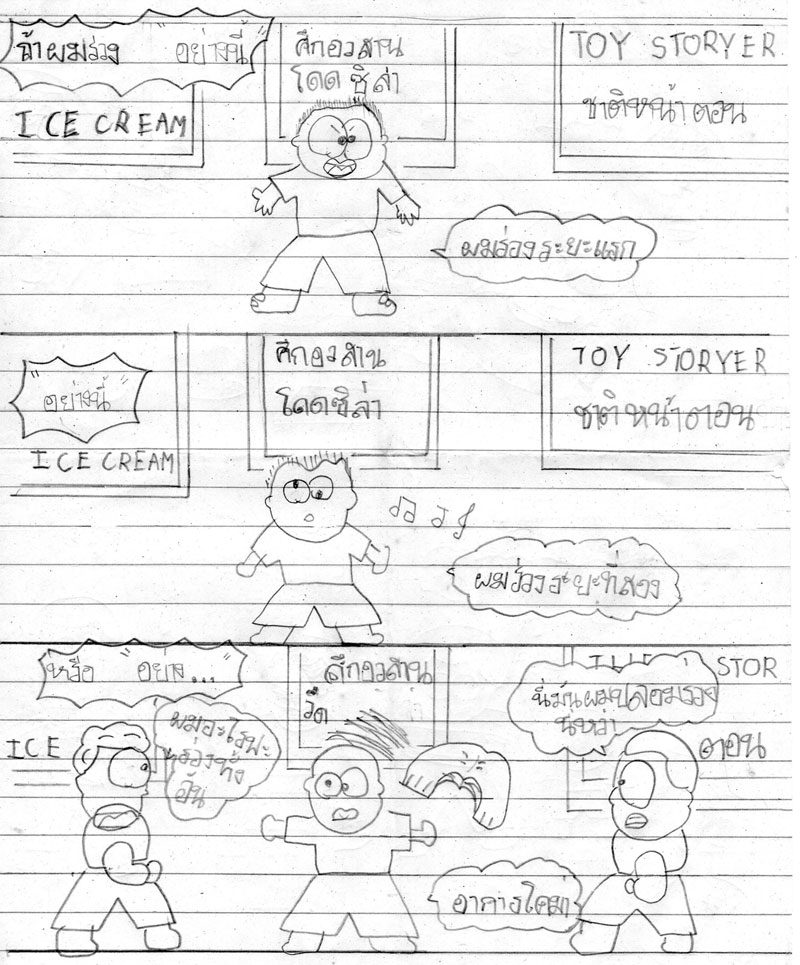 ถ้าผมร่วง "อย่างนี้"
ICE CREAM
ศึกอวสาน
โดดซิล่า
TOY STORYER
ชาติหน้าตอน
ผมร่วงระยะแรก
"อย่างนี้"
ICE CREAM
ศึกอวสาน
โดดซิล่า
TOY STORYER
ชาติหน้าตอน
ผมร่วงระยะที่สอง
หรือ "อย่าง..."
ICE
ผมอะไรฟะ
อัน
ศึกอวสาน
STOR
ตอน
นี่มันผมปลอมร่วง